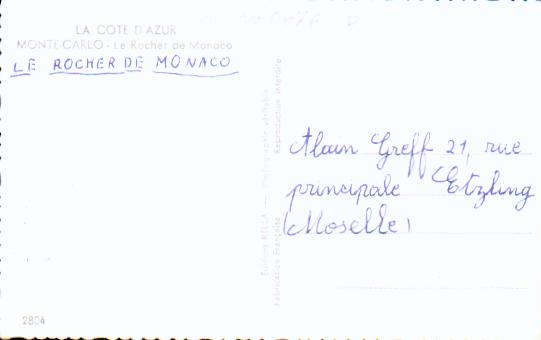 LA COTE D'AZUR
MONTE-CARLO - Le Rocher de Monaco
LE ROCHER DE MONACO
Alain Greff 21, rue
principale Etzling
(Moselle)
Editions RELLA — Photographie véritable
Fabrication Française Reproduction interdite
2804